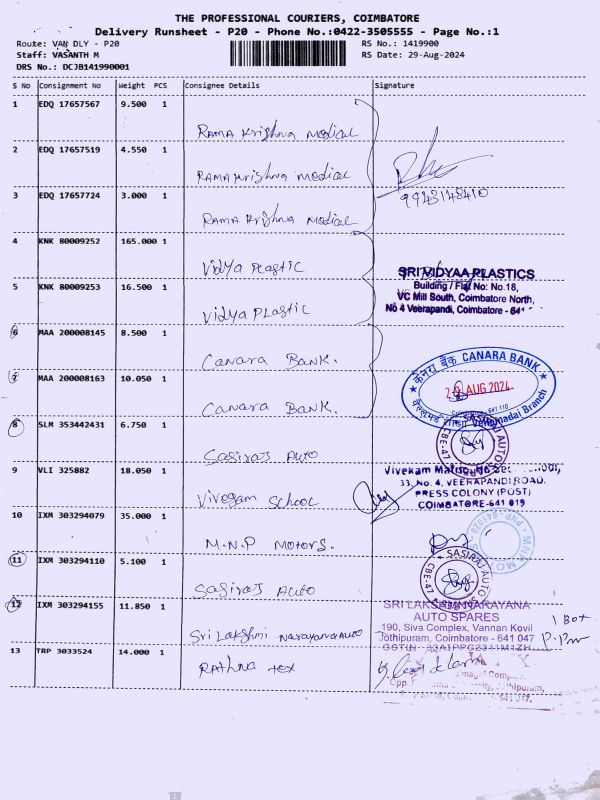 THE PROFESSIONAL COURIERS, COIMBATORE
Delivery Runsheet - P20 - Phone No.:0422-3505555 - Page No.:1
Route: VAN DLY - P20
RS No.: 1419900
Staff: VASANTH M
RS Date: 29-Aug-2024
DRS No.: DCJB141990001
S No Consignment No Weight PCS Consignee Details Signature
1 EDQ 17657567 9.500 1
RAMA Krishna Medical
2 EDQ 17657519 4.550 1
RAMA Krishna Medical
3 EDQ 17657724 3.000 1
9943148410
RAMA Krishna Medical
4 KNK 80009252 165.000 1
Vidya Plastic
SRI VIDYAA PLASTICS
Building / Flat No: No.18,
VC Mill South, Coimbatore North,
No 4 Veerapandi, Coimbatore - 641
5 KNK 80009253 16.500 1
Vidya Plastic
6 MAA 200008145 8.500 1
Canara Bank.
केनरा बैंक CANARA BANK
29 AUG 2024
Coimbatore - 641 110
Branch
7 MAA 200008163 10.050 1
Canara Bank.
8 SLM 353442431 6.750 1
Sasiraj Auto
SASIRAJ AUTO
CBE-47
9 VLI 325882 18.050 1
Vivegam School
Vivekam
33, No. 4, VEERAPANDI ROAD,
PRESS COLONY (POST)
COIMBATORE-641 019
10 IXM 303294079 35.000 1
M.N.P Motors.
11 IXM 303294110 5.100 1
Sasiraj Auto
SASIRAJ AUTO
CBE-47
12 IXM 303294155 11.850 1
Sri Lakshmi Narayana Auto
SRI LAKSHMI NARAYANA
AUTO SPARES
190, Siva Complex, Vannan Kovil
Jothipuram, Coimbatore - 641 047
GSTIN : 33AIPPG2311M1ZH
1 Box
13 TRP 3033524 14.000 1
Rathna tex
Complex,
Jothipuram,
641 047.